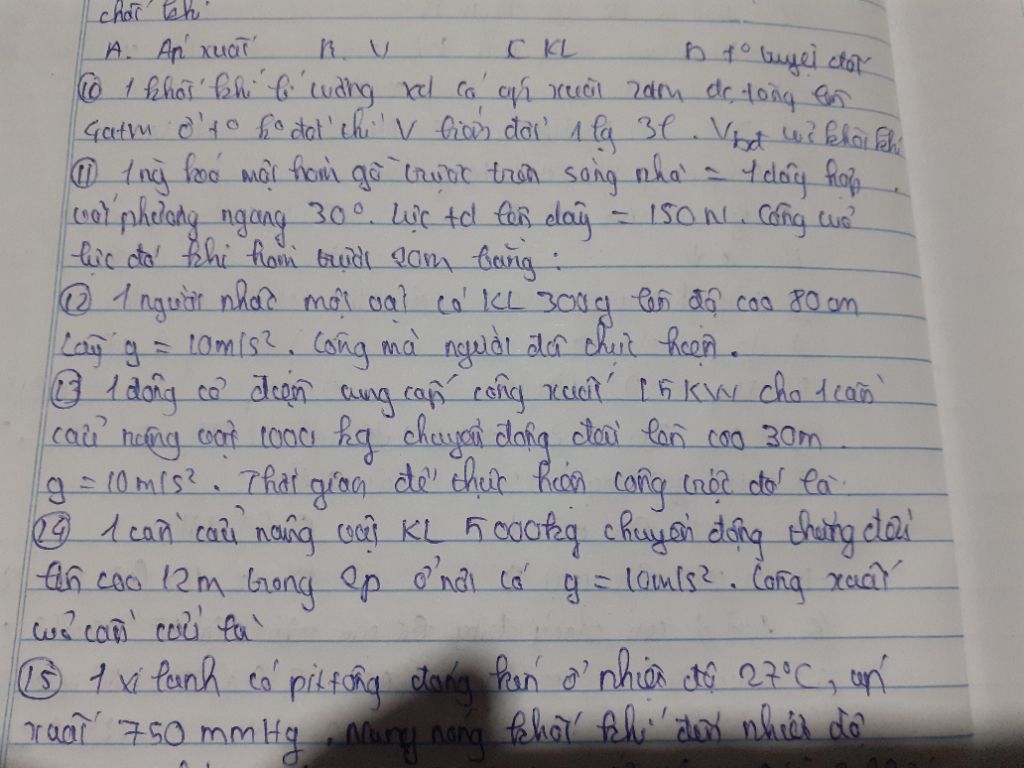 chất khí.
A. Áp xuất B. V C KL D t° tuyệt đối
⑩ 1 khối khí lí tưởng xđ có áp xuất 2atm đc tăng lên
4atm ở t° k° đổi thì V biến đổi 1 lg 3l. Vbđ củ khối khí
⑪ 1 ng kéo một hòm gỗ trượt trên sàng nhà = 1 dây hợp
với phương ngang 30°. Lực td lên dây = 150N. Công củ
lực đó khi hòm trượt 20m bằng:
⑫ 1 người nhấc một vật có KL 300g lên độ cao 80cm
Lấy g = 10m/s². Công mà người đã thực hiện.
⑬ 1 động cơ điện cung cấp công xuất 15KW cho 1 cần
cẩu nâng vật 1000 kg chuyển động đều lên cao 30m.
g = 10m/s². Thời gian để thực hiện công việc đó là.
⑭ 1 cần cẩu nâng vật KL 5000kg chuyển động thẳng đều
lên cao 12m trong 2p ở nơi có g = 10m/s². Công xuất
củ cần cẩu là
⑮ 1 xi lanh có pittông đóng kín ở nhiệt độ 27°C, áp
xuất 750 mmHg. Nung nóng khối khí đến nhiệt độ